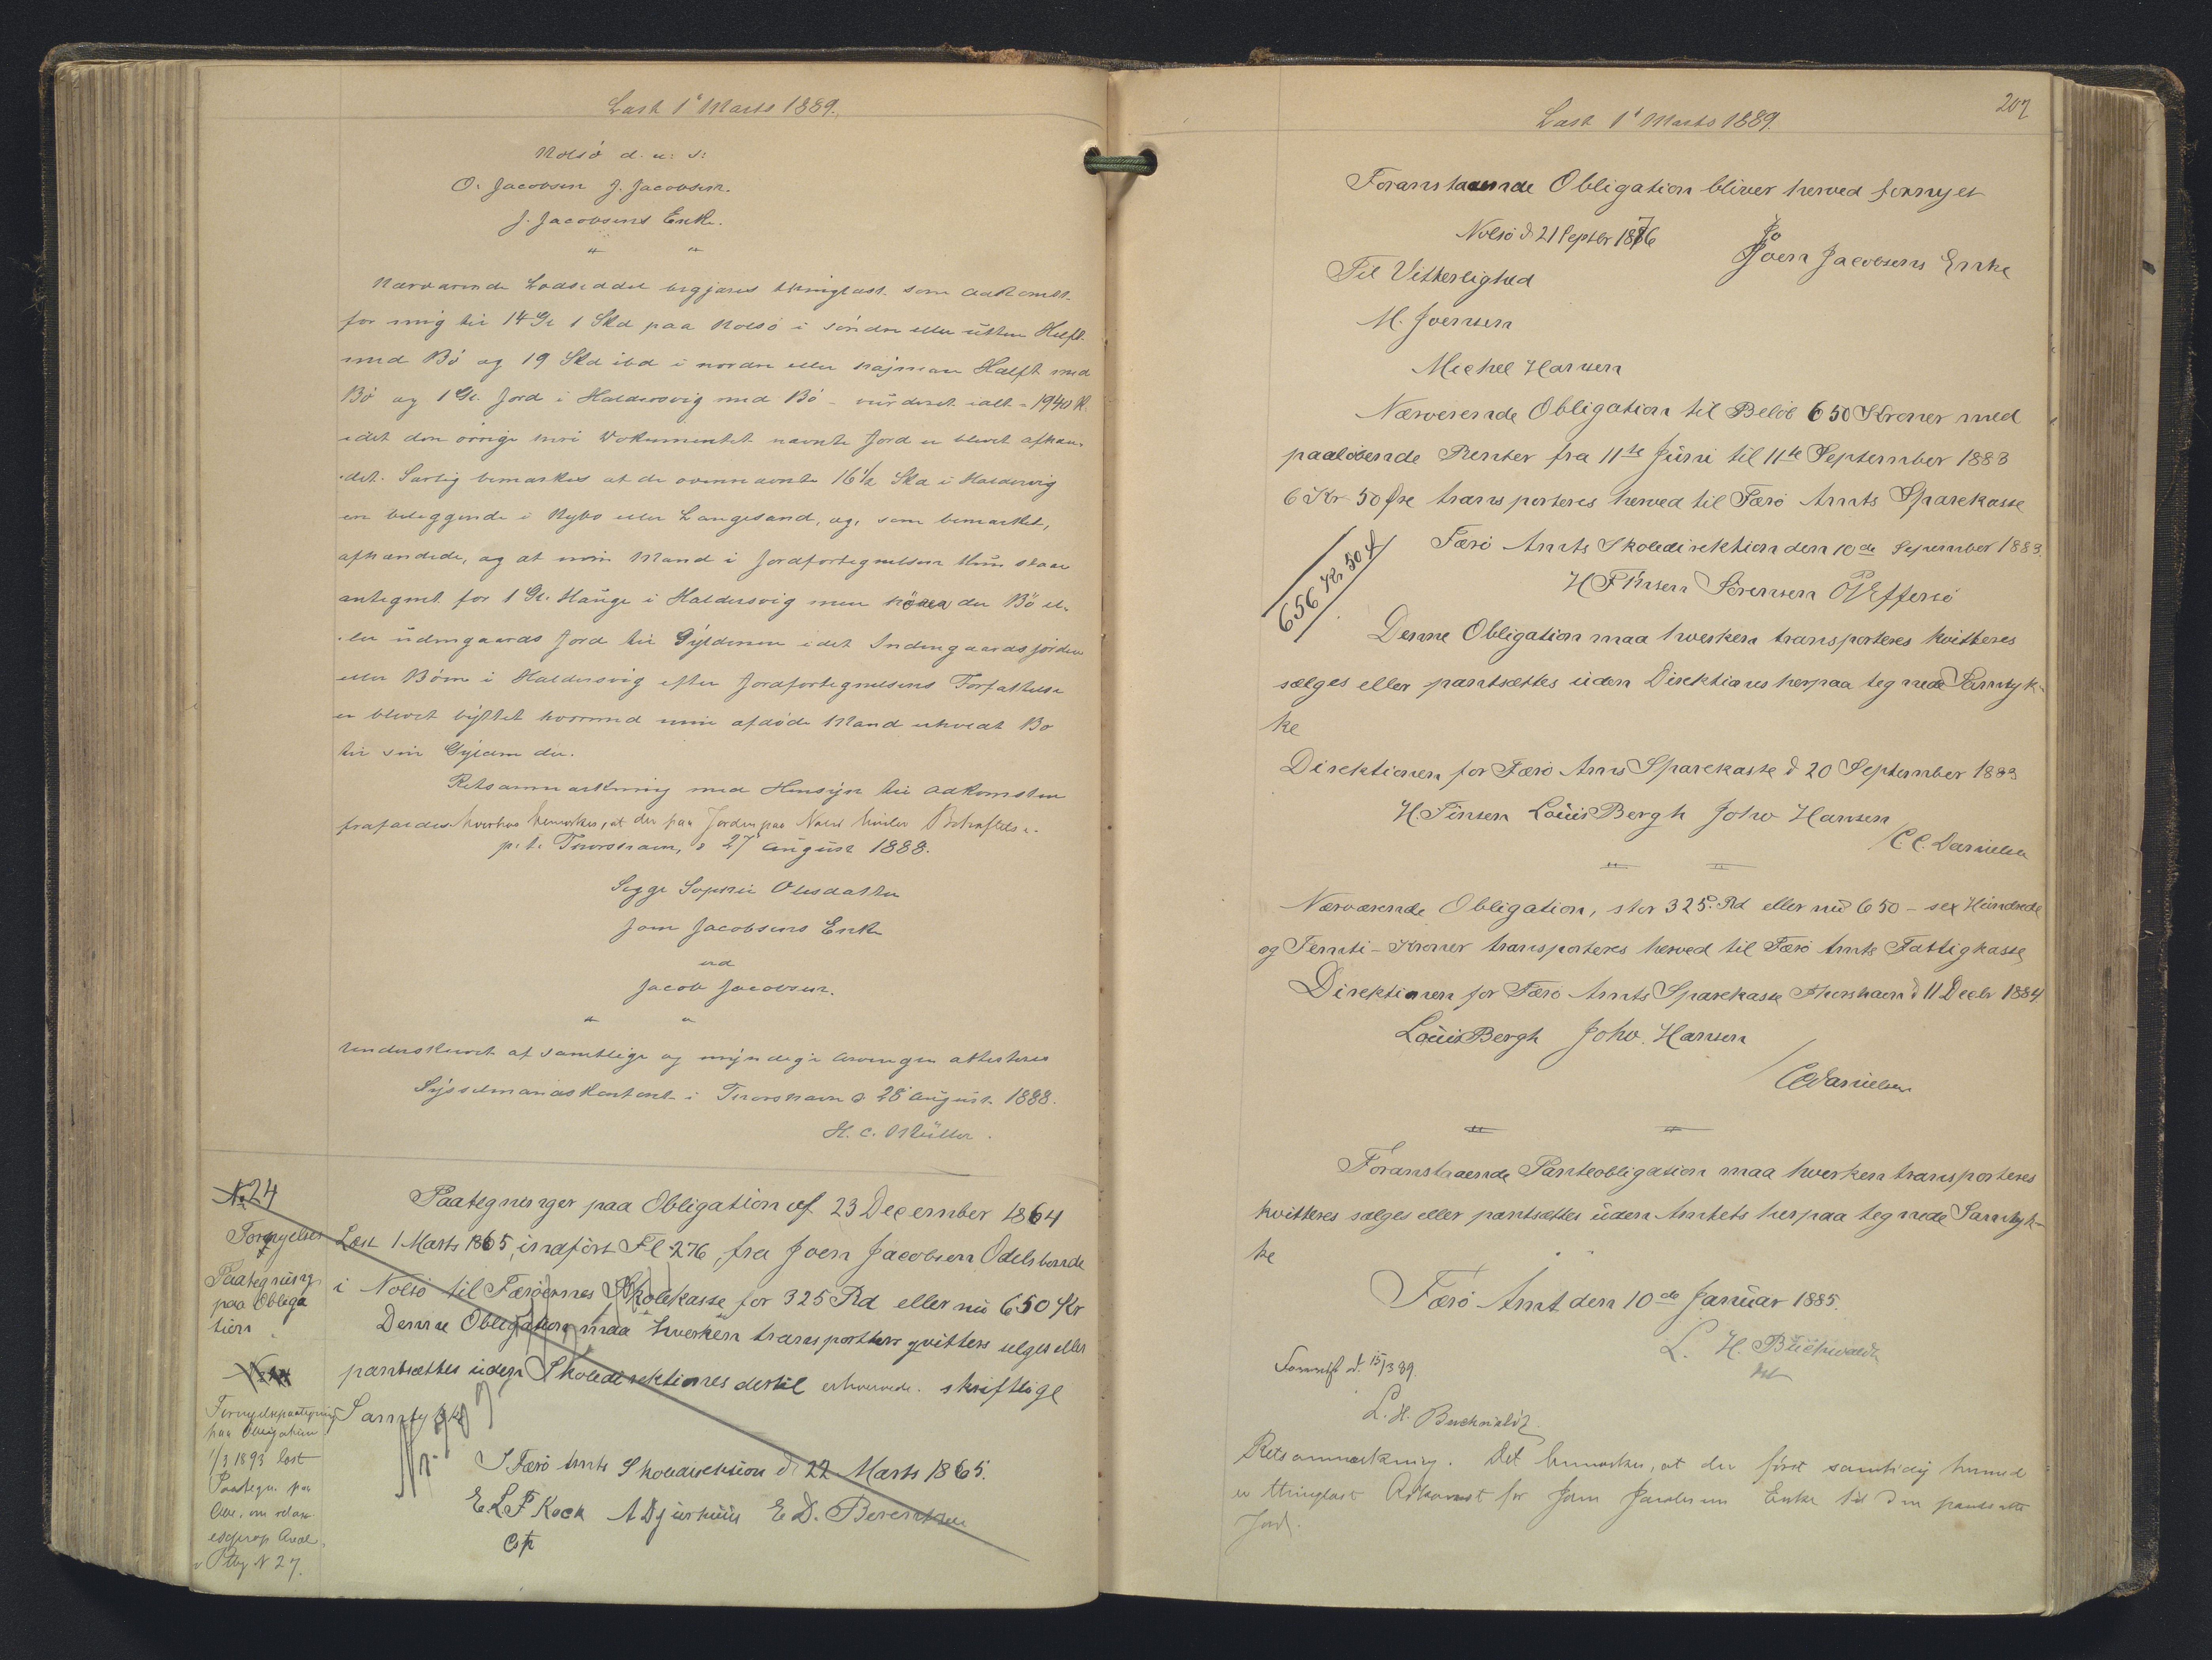 Læst 1' Marts 1889.
Nolsö d. u: s:
O. Jacobsen J. Jacobsen.
J. Jacobsens Enke.
" "
Nærværende Lodseddel begjæres thinglæst som Adkomst
for mig til 14 Gl 1 Skd paa Nolsö i söndre eller uttere Helft
med Bö og 19 Skd ibd i nordre eller Halft med
Bö og 1 Gl. Jord i Haldersvig med Bö - vurderet ialt = 1940 K.
idet den övrige i Dokumentet nævnte Jord er blevet afhæn-
det. Særlig bemærkes at de ovennævnte 16½ Skd i Haldersvig
er beliggende i Nybo eller Langesand, og, som bemærket,
afhændede, og at min Mand i Jordfortegnelsen kun staar
antegnet for 1 Gl. Hauge i Haldersvig men hörer der Bö el-
ler udengaards Jord til Gyldenen idet Indengaardsjorden
eller Böen i Haldersvig efter Jordfortegnelsens Forfattelse
er blevet byttet hvorved min afdöde Mand erhvedt Bö
til sin Gylden der.
Retsanmærkning med Hensyn til Adkomsten
frafaldes hvorhos bemærkes, at der paa Jorden paa Nolsö hviler Behæftelse.
p. t. Thorshavn, d 27 August 1888.
Sigge Sophie Olesdatter
Joen Jacobsens Enke
ved
Jacob Jacobsen.
" "
Underskrevet af samtlige og myndige Arvinger attesteres
Sysselmandskontoret i Thorshavn d 28 August 1888.
H. C. Müller.
No 24
Fornyelses
Paategning
paa Obliga
tion
Paategninger paa Obligation af 23 December 1864
Læst 1 Marts 1865, indfört Fl 276, fra Joen Jacobsen Odelsbonde
i Nolsö til Færöernes Skolekasse for 325 Rd eller nu 650 Kr
Denne Obligation maa hverken transporteres qvitteres selges eller
pantsættes uden Skoledirektionens dertil erhvervede skriftlige
Samtykke
I Færö Amts Skoledirektion d. 22 Marts 1865.
E. L. F Kock A Djurhuus E D. Berentsen
cst
Fornyelsespaategning
paa Obligation
1/3 1893 læst
Paategn. paa
Obl. om
Ptbg N 27.
207
Læst 1' Marts 1889.
Foranstaaende Obligation bliver herved fornyet
Nolsö d 21 Septbr 1876
Joen Jacobsens Enke
Til Vitterlighed
M. Joensen
Michel Hansen
Nærværende Obligation til Belöb 650 Kroner med
paalöbende Renter fra 11te Juni til 11te September 1883
6 Kr 50 Øre transporteres herved til Færö Amts Sparekasse
656 Kr 50 Ø
Færö Amts Skoledirektion den 10de September 1883.
H Finsen Sörensen P Effersö
Denne Obligation maa hverken transporteres kvitteres
sælges eller pantsættes uden Direktionens herpaa tegnede Samtyk-
ke
Direktionen for Færö Amts Sparekasse d 20 September 1883
H. Finsen Louis Bergh Johs Hansen
/C. C. Danielsen
" "
Nærværende Obligation, stor 325 Rd eller nu 650 - sex Hundrede
og Femti - Kroner transporteres herved til Færö Amts Fattigkasse
Direktionen for Færö Amts Sparekasse Thorshavn d 11 Decbr 1884
Louis Bergh Johs. Hansen
/CC Danielsen
" "
Foranstaaende Panteobligation maa hverken transporteres
kvitteres sælges eller pantsættes uden Amtets herpaa tegnede Samtyk-
ke
Færö Amt den 10de Januar 1885.
L. H. Buchwaldt
kst
Forevist d. 15/3 89.
L. H. Buchwaldt
Retsanmærkning. Det bemærkes, at der först samtidig hermed
er thinglæst Adkomst for Joen Jacobsens Enke til den pantsatte
Jord.